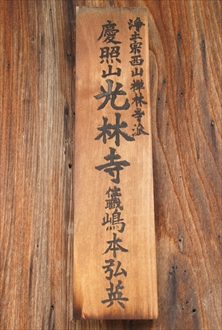 浄土宗西山禅林寺派
慶照山光林寺
住職嶋本弘英